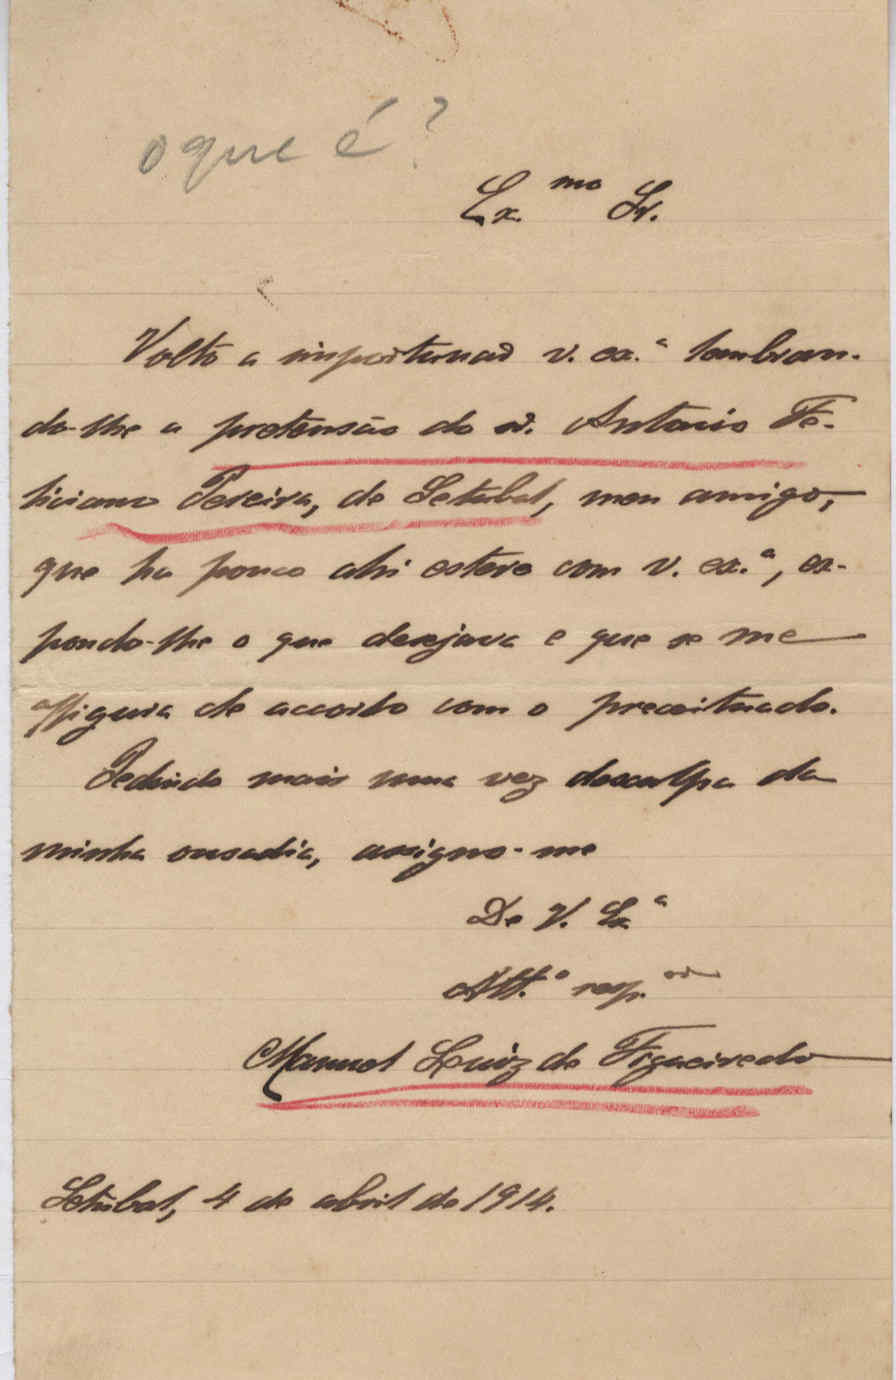 o que é?
Ex.mo Sr.
Volto a importunar v. ex.ª lembran-
do-lhe a pretensão do sr. Antonio Fe-
liciano Pereira, de Setubal, meu amigo,
que ha pouco ahi esteve com v. ex.ª, ex-
pondo-lhe o que desejava e que se me
affigura de accordo com o preceituado.
Pedindo mais uma vez desculpa da
minha ousadia, assigno-me
De V. Ex.ª
Att.º resp.or
Manuel Luiz de Figueiredo
Setubal, 4 de abril de 1914.